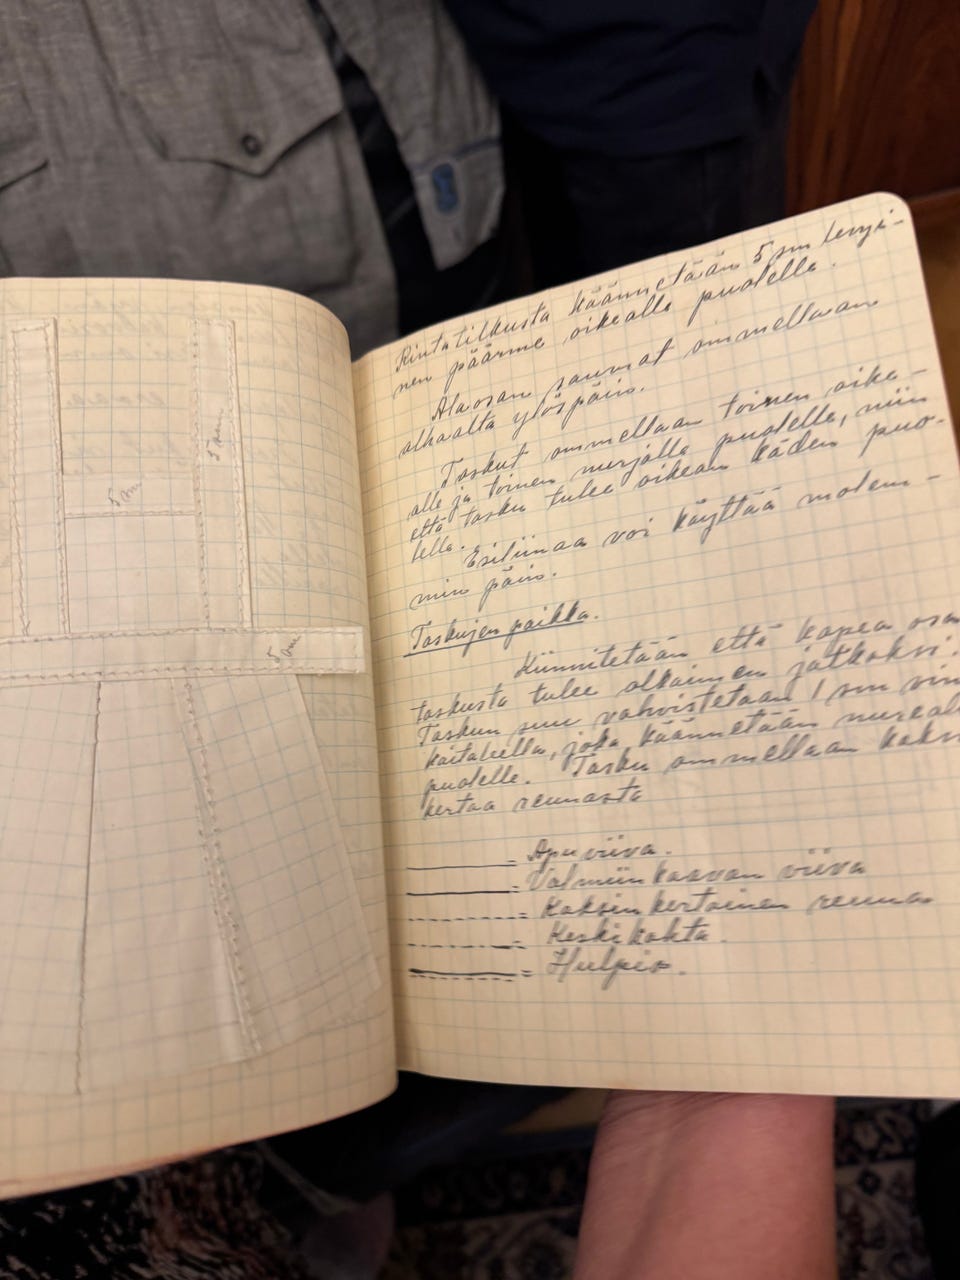 5 sm
5 sm
5 sm
Rintatilkusta käännetään 5 sm levyi-
nen päärme oikealle puolelle.
Alaosan saumat ommellaan
alhaalta ylöspäin.
Taskut ommellaan toinen oike-
alle ja toinen nurjalle puolelle, niin
että tasku tulee oikean käden puo-
lelle.
Esiliinaa voi käyttää molem-
min päin.
Taskujen paikka.
Kiinnitetään että kapea osa
taskusta tulee olkaimen jatkoksi.
Taskun suu vahvistetaan 1 sm vino
kaitaleella, joka käännetään nurjalle
puolelle. Tasku ommellaan kaksi
kertaa reunasta
= Apuviiva.
= Valmiin kaavan viiva
= Kaksinkertainen reuna
= Keskikohta.
= Hulpio.